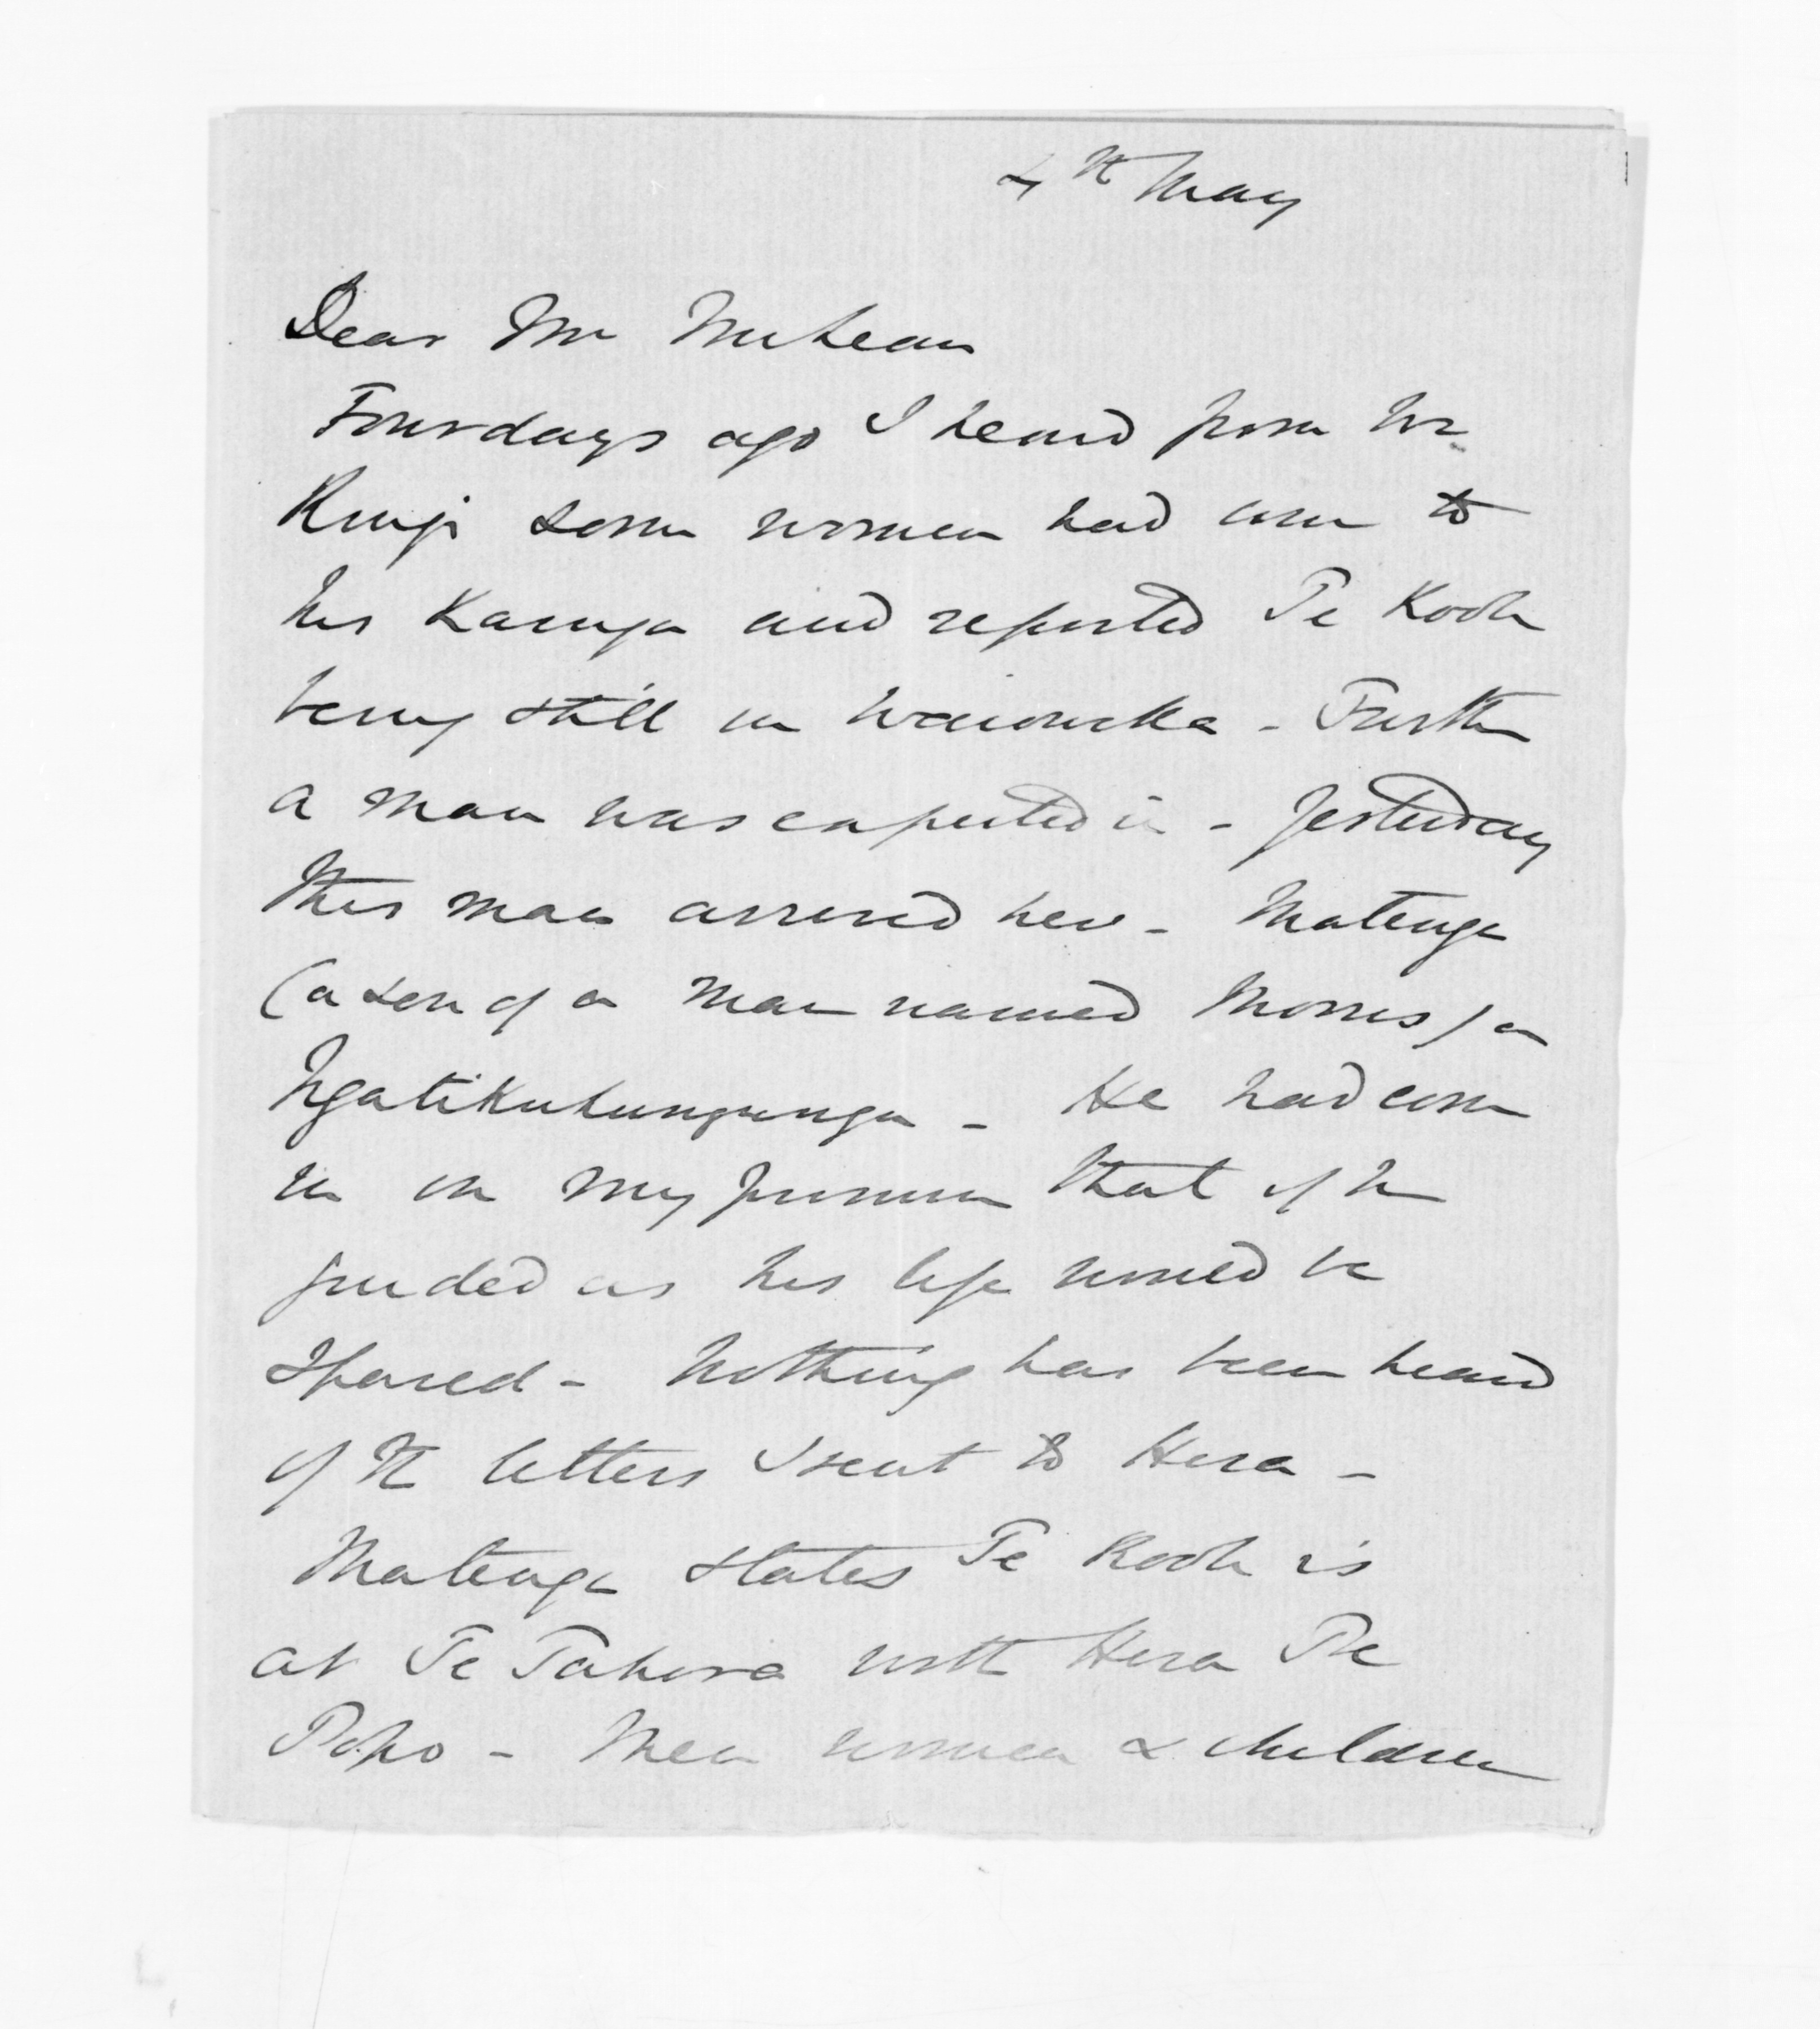 4th May
Dear Mr McLean
Four days ago I heard from Wi
Kingi some women had come to
his Kainga and reported Te Kooti
being still in Waioweka - Further
a man was expected in - Yesterday
this man arrived here - Matenga
(a son of a man named Morris) a
Ngatikuhungunga - He had come
in on my promise that if he
guided us his life would be
spared - Nothing has been heard
of the letters I sent to Hira -
Matenga states Te Kooti is
at Te Tahora with Hira Te
Popo - Men women & children